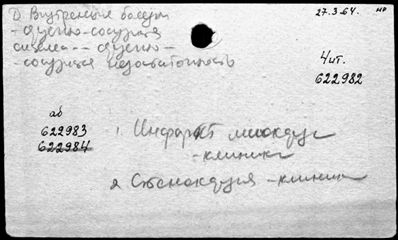 D Внутренние болезни
27.3.64. нр
- сердечно-сосудистая
система -- сердечно-
- сосудистая недостаточность
4 ит.
622982
аб
622983
622984
1. Инфаркт миокарда
- клиника
2 Стенокардия - клиника